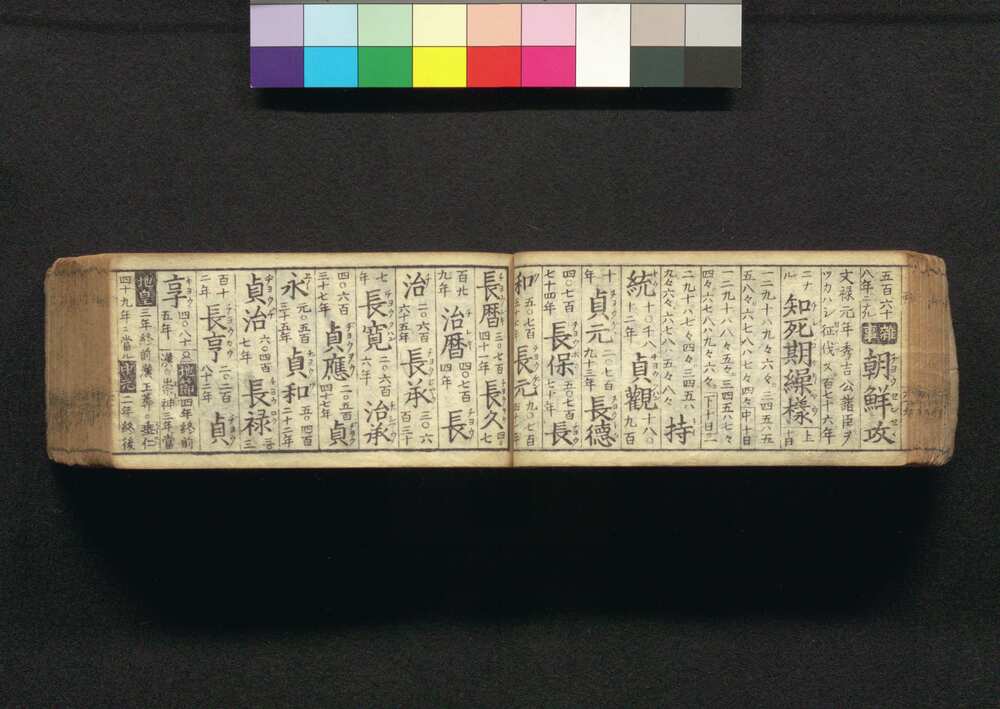 五百六十 雜事 朝鮮攻
八年ニナル
文禄元年秀吉公諸臣ヲ
ツカハシ征伐ス百七十六年
ニナル 知死期繰樣 上十日
一二九十八八九々六々三四五八五
五八々六七八八七々四々中十日
一二九十八八々五々三四五八七々
四々六七八八九々六々下十日二
二九十八々七々四々三四五八
九々六々六七八八五々々 持
統 千八十年 貞觀 九百十八年
貞元 七百九十三年 長德
四〇七百七十四年 長保 五〇七百七十年 長
和 五〇七百 長元 九〇七百
長暦 三〇七百四十一年 長久 七
百九年 治暦 四〇七百四年 長
治 二〇六百六十五年 長承 三〇六百三十
七年 長寛 二〇六百六年 治承
四〇六百三十七年 貞應 二〇五百四十七年 貞
永 元〇五百三十五年 貞和 五〇四百二十二年
貞治 六〇四百七年 長禄 三〇三
百十二年 長亨 二〇二百八十二年 貞
享 四〇八十五年 地節 四年終前
漢
地皇 三年終前漢王莽
四十九年ニ當ル 中元 二年終後